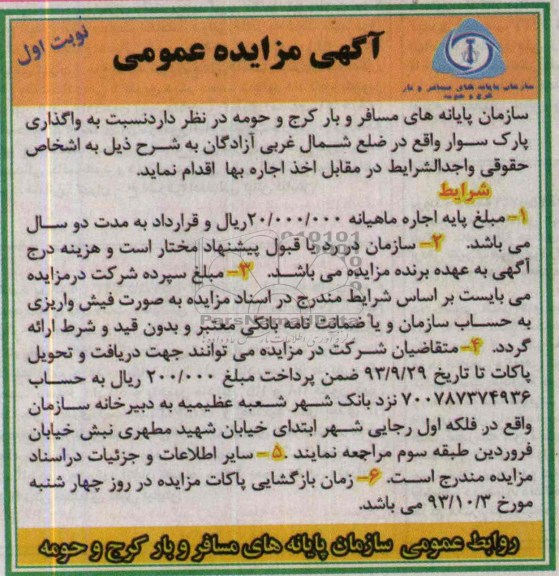 نوبت اول
آگهی مزایده عمومی
سازمان پایانه های مسافر و بار
کرج و حومه
سازمان پایانه های مسافر و بار کرج و حومه در نظر داردنسبت به واگذاری
پارک سوار واقع در ضلع شمال غربی آزادگان به شرح ذیل به اشخاص
حقوقی واجدالشرایط در مقابل اخذ اجاره بها اقدام نماید.
شرایط
۱- مبلغ پایه اجاره ماهیانه ۲۰/۰۰۰/۰۰۰ریال و قرارداد به مدت دو سال
می باشد. ۲- سازمان در رد یا قبول پیشنهاد مختار است و هزینه درج
آگهی به عهده برنده مزایده می باشد. ۳- مبلغ سپرده شرکت درمزایده
می بایست بر اساس شرایط مندرج در اسناد مزایده به صورت فیش واریزی
به حساب سازمان و یا ضمانت نامه بانکی معتبر و بدون قید و شرط ارائه
گردد. ۴- متقاضیان شرکت در مزایده می توانند جهت دریافت و تحویل
پاکات تا تاریخ ۹۳/۹/۲۹ ضمن پرداخت مبلغ ۲۰۰/۰۰۰ ریال به حساب
۷۰۰۷۸۷۳۷۴۹۳۶ نزد بانک شهر شعبه عظیمیه به دبیرخانه سازمان
واقع در فلکه اول رجایی شهر ابتدای خیابان شهید مطهری نبش خیابان
فروردین طبقه سوم مراجعه نمایند .۵- سایر اطلاعات و جزئیات دراسناد
مزایده مندرج است. ۶- زمان بازگشایی پاکات مزایده در روز چهار شنبه
مورخ ۹۳/۱۰/۳ می باشد.
روابط عمومی سازمان پایانه های مسافر و بار کرج و حومه
ParsNamadData